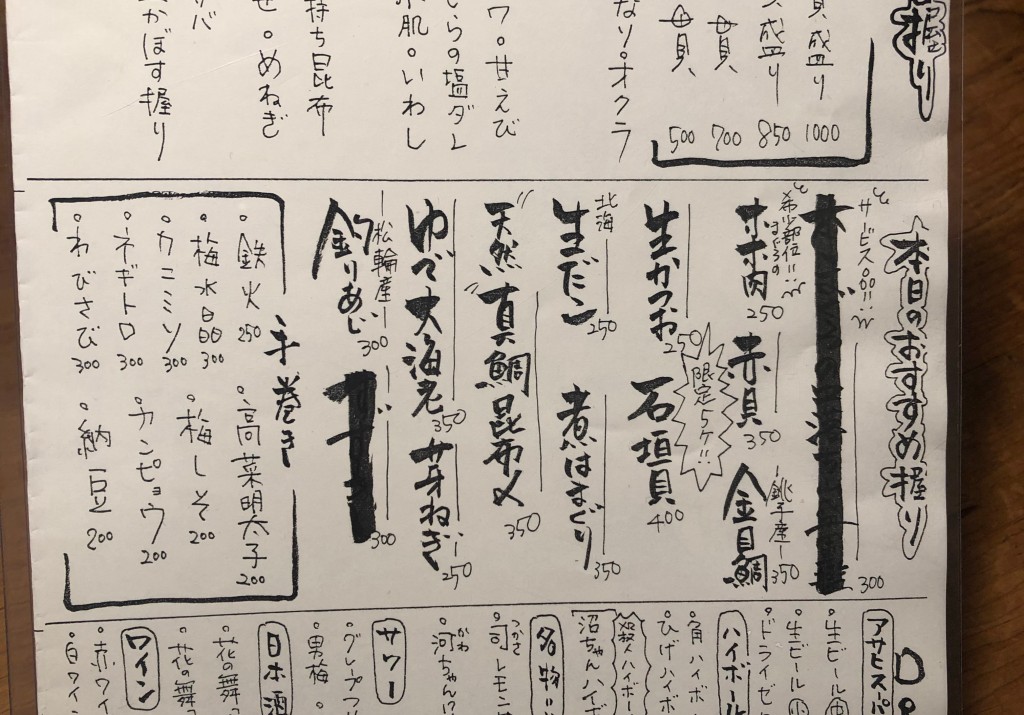 握り
貫盛り 1000
盛り 850
貫 700
貫 500
なり。オクラ
ワ。甘えび
しらの塩ダレ
水肌。いわし
持ち昆布
ぜ。めねぎ
サバ
かぼす握り
本日のおすすめ握り
サービス品!!
300
希少部位!!
まぐろの
ホホ肉 250
赤貝 350
銚子産
金目鯛 350
生かつお 250
限定5ケ!!
石垣貝 400
北海
生だこ 250
煮はまぐり 350
天然"真鯛昆布〆 350
ゆで大海老 350
芽ねぎ 250
松輪産
釣りあじ 300
300
手巻き
・鉄火 250
・高菜明太子 200
・梅水晶 300
・梅しそ 200
・カニミソ 300
・カンピョウ 200
・ネギトロ 300
・納豆 200
・わびさび 300
アサヒスーパー
・生ビール 中
・生ビール 小
・ドライゼ
ハイボール
・角ハイボ
・ひげハイボ
ハイボー
沼ちゃんハイボ
名物
つかさ
・司レモン
かわ
・河ちゃん
サワー
・グレープフ
・男梅
日本酒
・花の舞
・花の舞
ワイン
・赤ワイ
・白ワイン